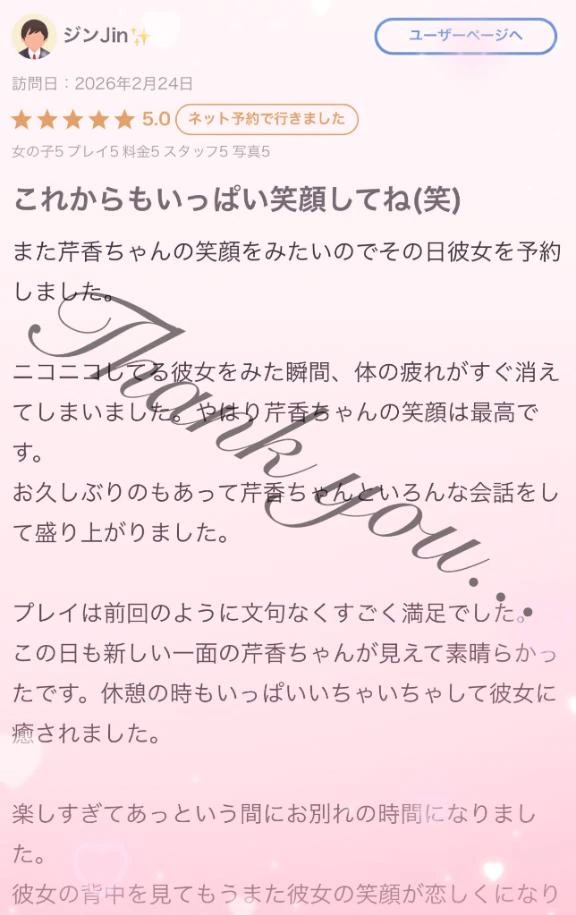 ジンJin✨
ユーザーページへ
訪問日：2026年2月24日
★★★★★ 5.0 ネット予約で行きました
女の子5 プレイ5 料金5 スタッフ5 写真5
これからもいっぱい笑顔してね(笑)
また芹香ちゃんの笑顔をみたいのでその日彼女を予約
しました。
ニコニコしてる彼女をみた瞬間、体の疲れがすぐ消え
てしまいました。やはり芹香ちゃんの笑顔は最高で
す。
お久しぶりのもあって芹香ちゃんといろんな会話をし
て盛り上がりました。
Thank you...
プレイは前回のように文句なくすごく満足でした。
この日も新しい一面の芹香ちゃんが見えて素晴らかっ
たです。休憩の時もいっぱいいちゃいちゃして彼女に
癒されました。
楽しすぎてあっという間にお別れの時間になりまし
た。
彼女の背中を見てもうまた彼女の笑顔が恋しくになり